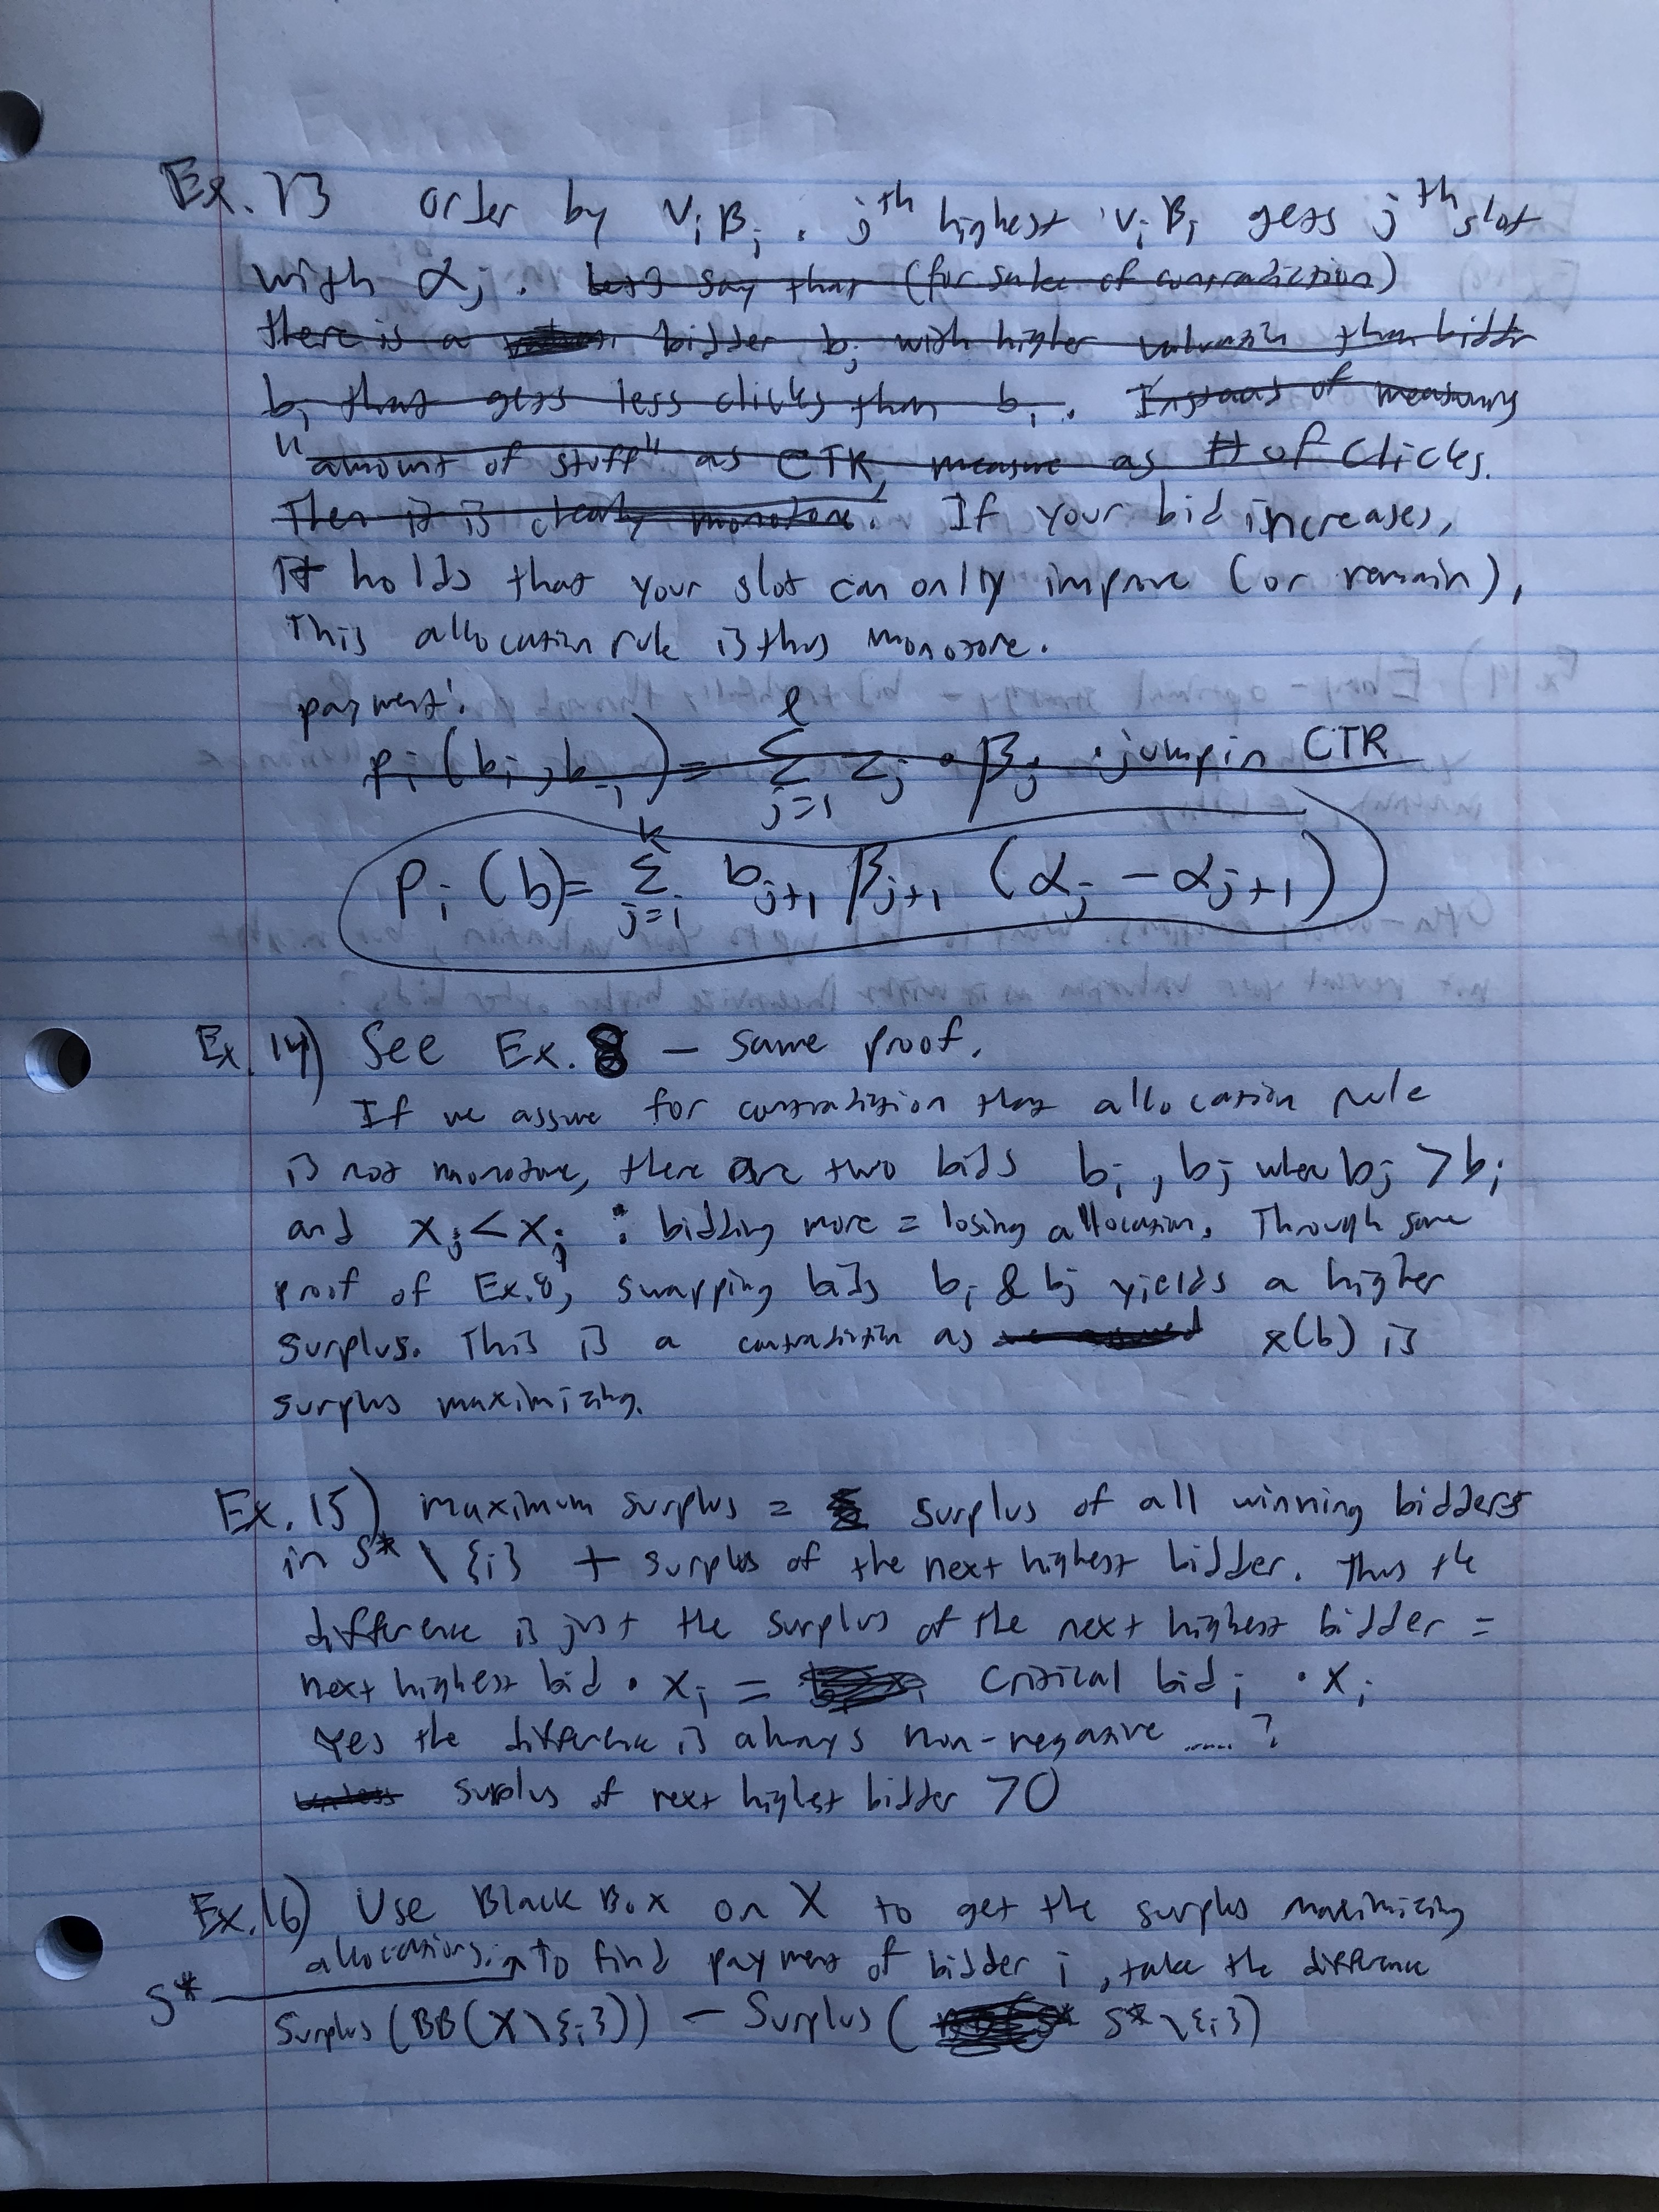 Ex. 13 order by viβi. jth highest viβi gets jth slot
with αj. Let's say that (for sake of contradiction)
there is a bidder bj with higher valuation than bidder
bi that gets less clicks than bi. Instead of measuring
"amount of stuff" as CTR, measure as # of clicks.
Then it is clearly monotone. If your bid increases,
It holds that your slot can only improve (or remain),
This allocation rule is thus monotone.
payment:
pi(bi, b-i) = Σ_{j=1}^{l} zj · βj · jump in CTR
Pi(b) = Σ_{j=i}^{k} bj+1 βj+1 (αj − αj+1)
Ex. 14) See Ex. 8 – same proof.
If we assume for contradiction that allocation rule
is not monotone, there are two bids bi, bj where bj > bi
and xj < xi : bidding more = losing allocation. Through same
proof of Ex. 8, swapping bids bi & bj yields a higher
surplus. This is a contradiction as x(b) is
surplus maximizing.
Ex. 15) maximum surplus = surplus of all winning bidders
in S* \ {i} + surplus of the next highest bidder. Thus the
difference is just the surplus of the next highest bidder =
next highest bid · xi = critical bidi · xi
Yes the difference is always non-negative ......?
unless surplus of next highest bidder >0
Ex. 16) Use Black Box on X to get the surplus maximizing
S* allocations. to find payment of bidder i, take the difference
Surplus (BB(X\{i})) − Surplus ( S* \{i})